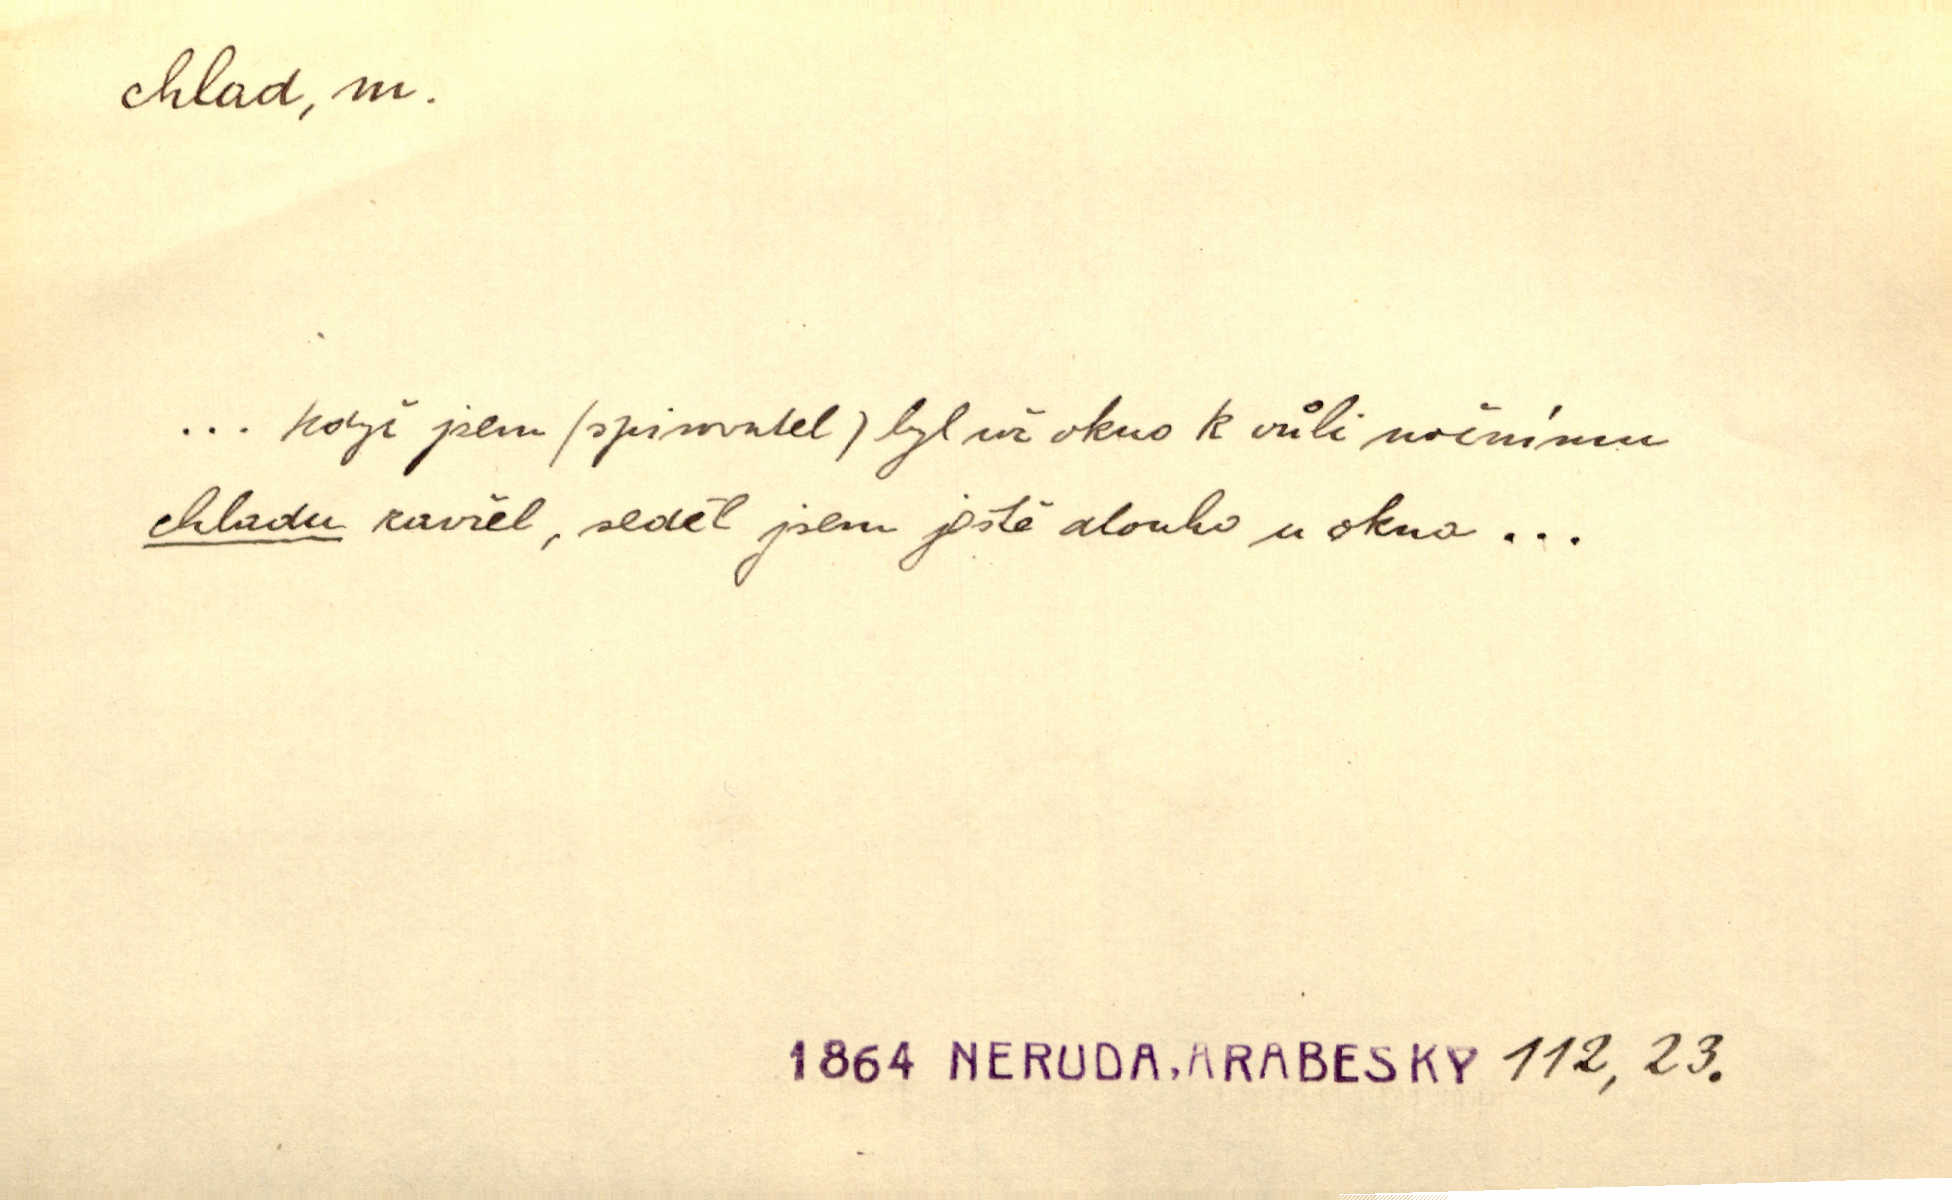 chlad, m.
... když jsem (spisovatel) byl již okno k vůli nočnímu
chladu zavřel, seděl jsem ještě dlouho u okna ...
1864 NERUDA, ARABESKY 112, 23.